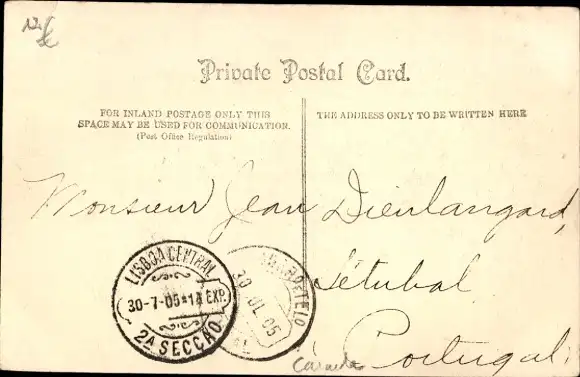 Private Postal Card.
FOR INLAND POSTAGE ONLY THIS
SPACE MAY BE USED FOR COMMUNICATION.
(Post Office Regulation)
THE ADDRESS ONLY TO BE WRITTEN HERE
Monsieur Jean Dienlangard,
Sétubal
Portugal.
LISBOA CENTRAL
30-7-05*14 EXP.
2A SECÇÃO
30 JUL 05
Canada